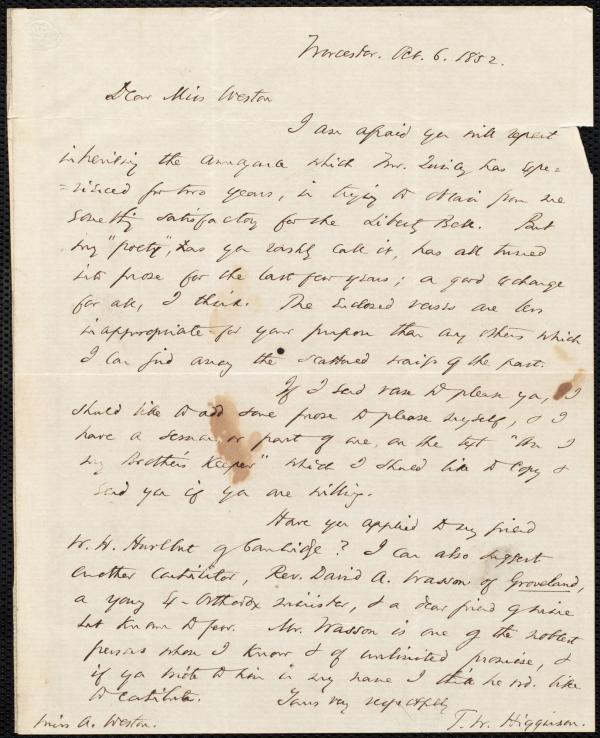 Worcester. Oct. 6. 1852.
Dear Miss Weston
I am afraid you will repent
inheriting the annoyance which Mr. Quincy has expe=
=rienced for two years, in trying to obtain from me
something satisfactory for the Liberty Bell. But
my "poetry", as you rashly call it, has all turned
into prose for the last few years; a good exchange
for all, I think. The enclosed verses are less
inappropriate for your purpose than any others which
I can find among the scattered waifs of the past.
If I send verse to please you, I
should like to add some prose to please myself, & I
have a sermon or part of one, on the text "Am I
my Brother's Keeper" which I should like to copy &
send you if you are willing.
Have you applied to my friend
W. H. Hurlbut of Cambridge? I can also suggest
another contributor, Rev. David A. Wasson of Groveland,
a young Orthodox minister, & a dear friend of mine
but known to few. Mr. Wasson is one of the noblest
persons whom I know & of unlimited promise, &
if you write to him in my name I think he wd. like
to contribute. Yours very respectfully
Miss A. Weston. T. W. Higginson.